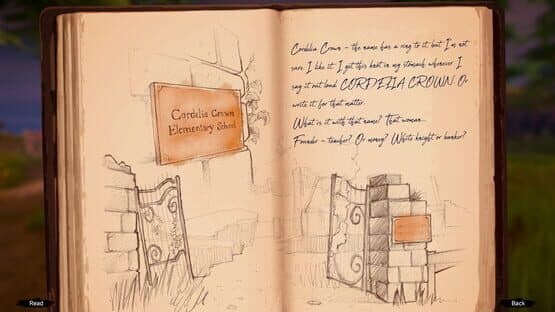 Cordelia Crown
Elementary School
Cordelia Crown – the name has a ring to it but I'm not
sure. I like it. I get this knot in my stomach whenever I
say it out loud. CORDELIA CROWN. Or
write it, for that matter.
What is it with that name? That woman...
Founder – teacher? Or money? White knight or banker?
Read
Back